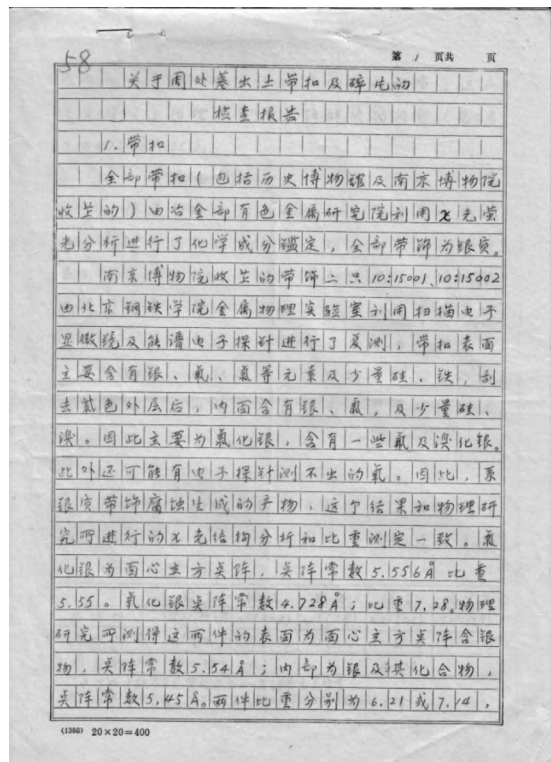 58
第 1 页共 页
关于周处墓出土带扣及碎片的
检查报告
1. 带扣
全部带扣(包括历史博物馆及南京博物院
收芷的)由冶金部有色金属研究院利用X光萤
光分析进行了化学成分鉴定,全部带饰为银质。
南京博物院收芷的带饰二只10:15001、10:15002
由北京钢铁学院金属物理实验室利用扫描电子
显微镜及能谱电子探针进行了复测,带扣表面
主要含有银、氯、等元素及少量硅、铁,刮
去 色外层后,内面含有银、氯,及少量硅、
溴。因此主要为氯化银,含有一些 及溴化银。
此外还可能有电子探针测不出的氧。因此,系
银质带饰腐蚀生成的产物,这个结果和物理研
究所进行的X光结构分析和比重测定一致。氯
化银为面心立方 阵, 阵常数5.556Å 比重
5.55。氧化银 阵常数4.728Å;比重7.28。物理
研究所测得这两件的表面为面心立方 阵含银
物, 阵常数5.54Å;内部为银及其化合物,
阵常数5.45Å。两件比重分别为6.21或7.14,
(1386) 20×20=400